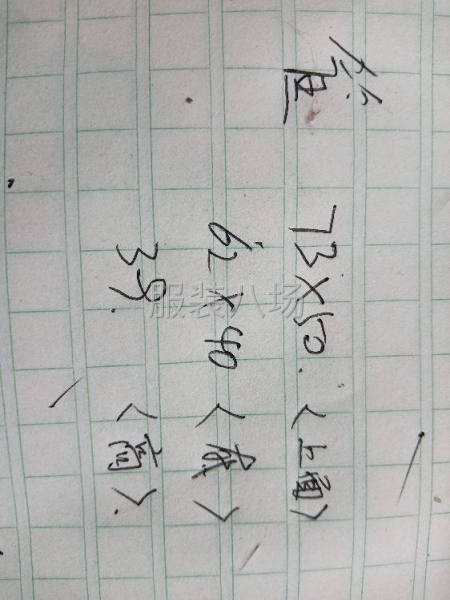 73×50.<上面>
62×40<底>
39.<高>.
服装八场